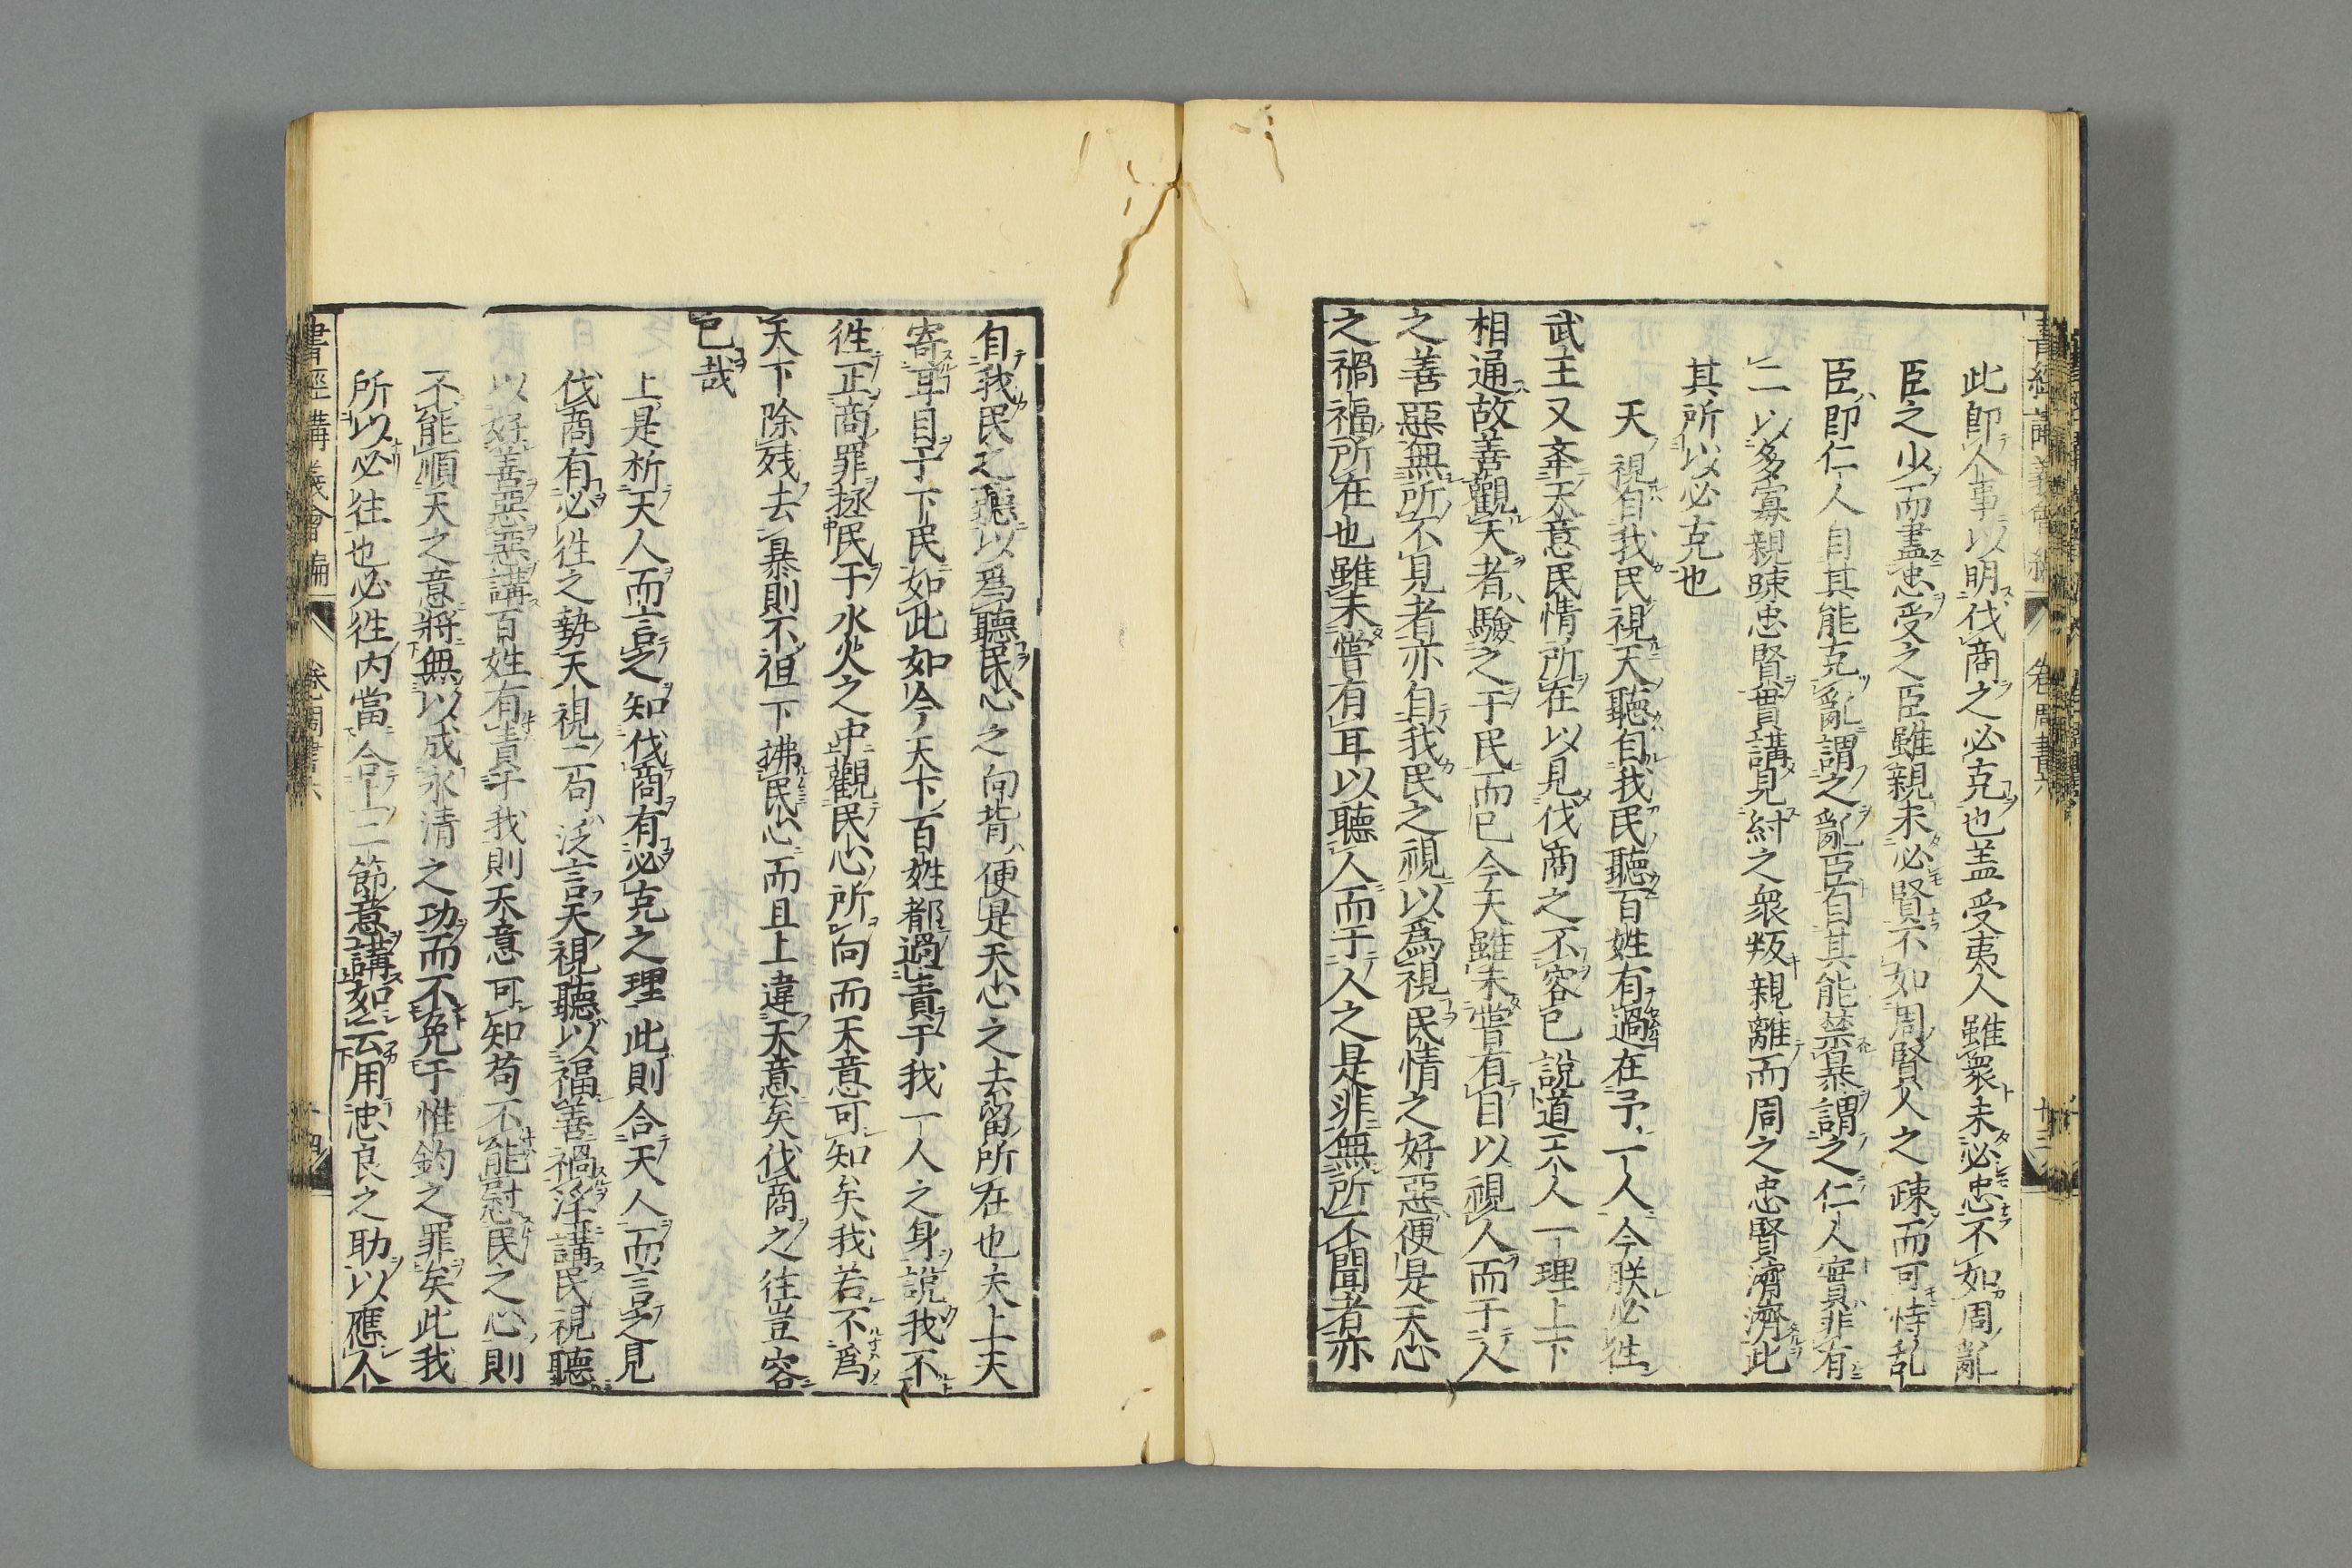 此即人事以明伐商之必克也盖受夷人雖衆未必忠不如周亂
臣之少而盡忠受之臣雖親未必賢不如周賢人之疎而可恃乱
臣即仁人自其能克亂謂之亂臣自其能禁暴謂之仁人實非有
二以多寡親疎忠賢實講見紂之衆叛親離而周之忠賢濟濟此
其所以必克也
天視自我民視天聽自我民聽百姓有過在予一人今朕必往
武王又奉天意民情所在以見伐商之不容已說道天人一理上下
相通故善觀天者驗之于民而已今天雖未嘗有目以視人而于人
之善惡無所不見者亦自我民之視以爲視民情之好惡便是天心
之禍福所在也雖未嘗有耳以聽人而于人之是非無所不聞者亦
自我民之聽以爲聽民心之向背便是天心之去留所在也夫上天
寄耳目于下民如此如今天下百姓都過責于我一人之身說我不
往正商罪拯民于水火之中觀民心所向而天意可知矣我若不爲
天下除殘去暴則不徂下拂民心而且上違天意矣伐商之往豈容
已哉
上是析天人而言之知伐商有必克之理此則合天人而言之見
伐商有必往之勢天視二句泛言天視聽以福善禍淫講民視聽
以好善惡惡講百姓有責于我則天意可知苟不能慰民之心則
不能順天之意將無以成永清之功而不免于惟鈞之罪矣此我
所以必往也必往内當合上二節意講如云用忠良之助以應人
書經講義會編 卷 周書六